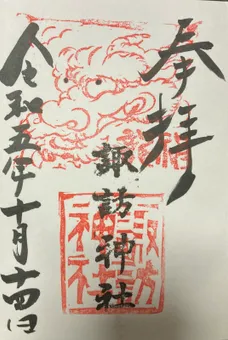 奉拝
諏訪神社
諏訪神社
令和五年十月十四日